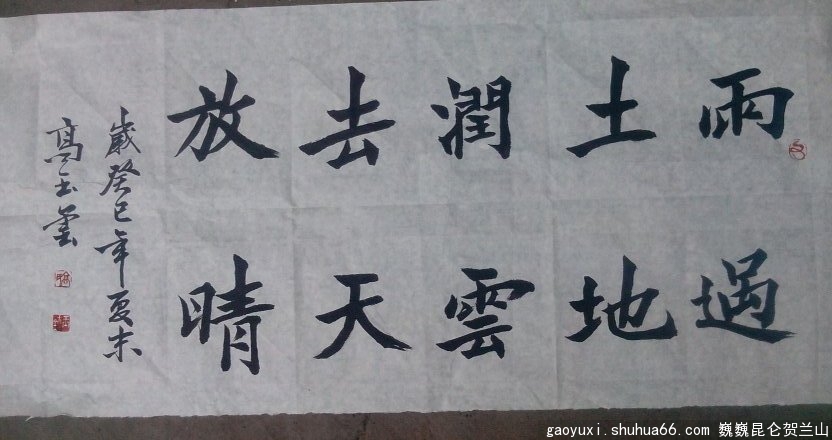 雨過
土地
潤雲
去天
放晴
歲癸巳年夏末
高玉玺
gaoyuxi.shuhua66.com 巍巍昆仑贺兰山